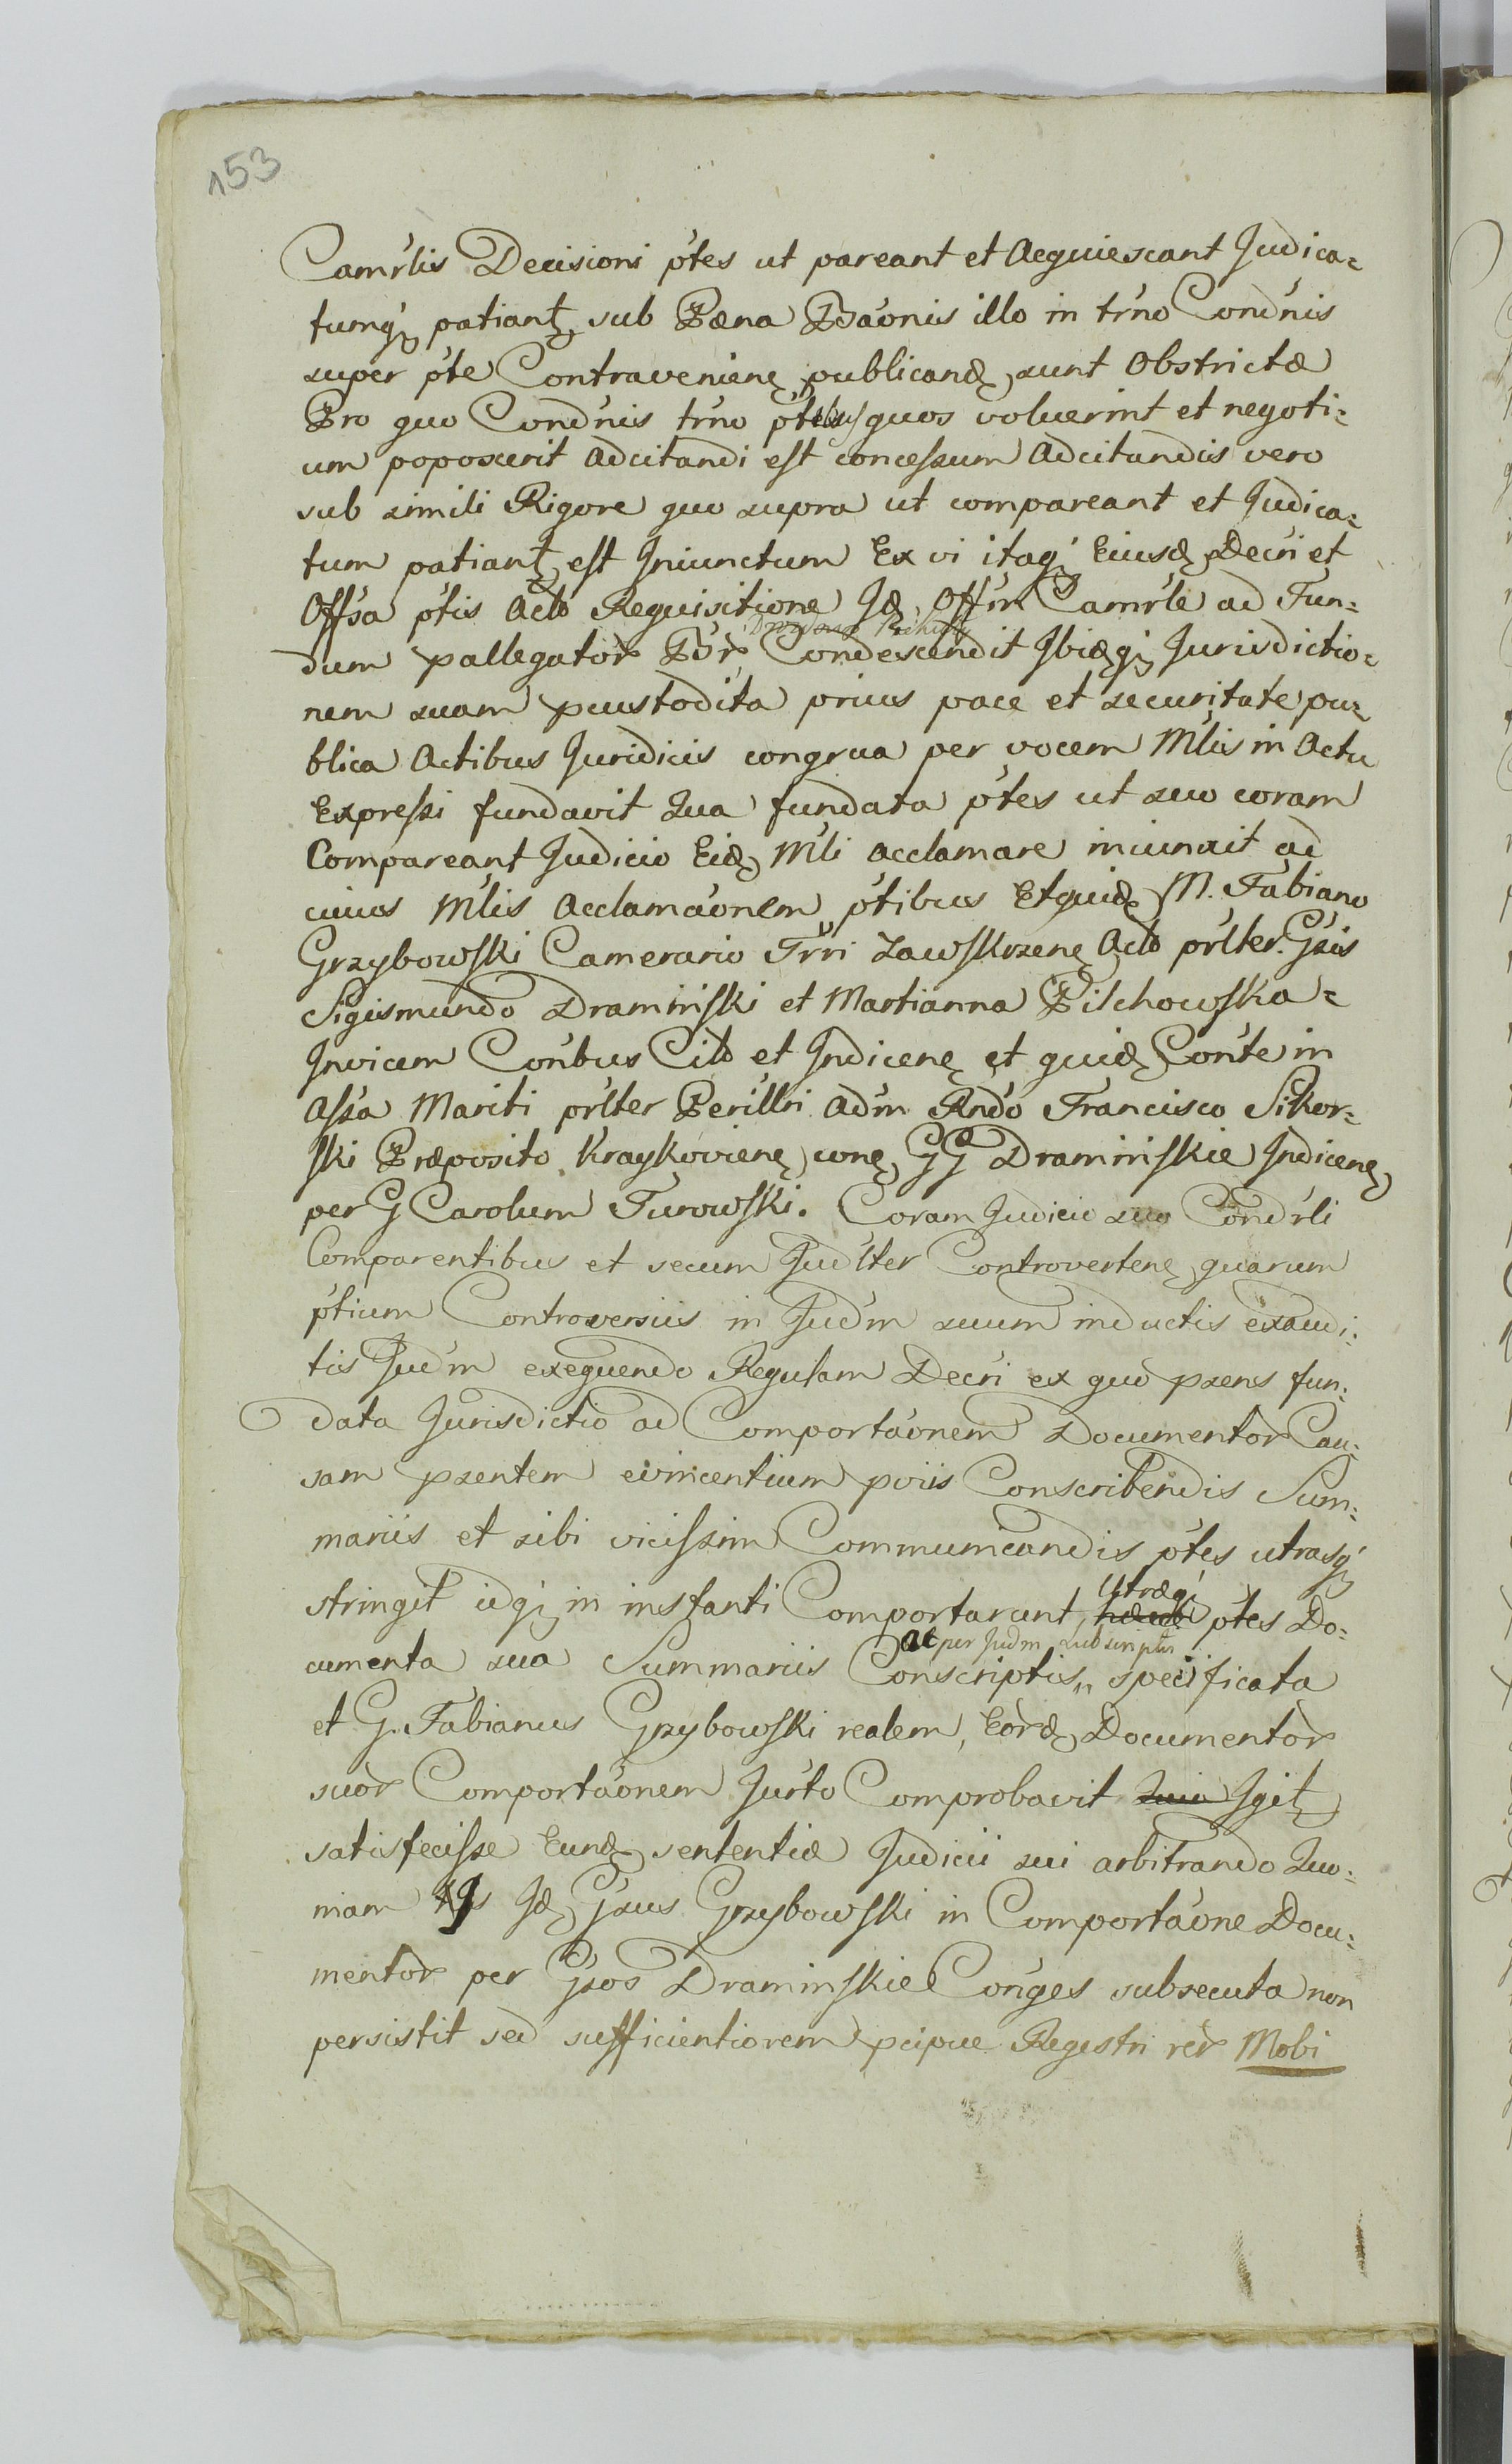 153
Camŕlis Decisioni ṕtes ut pareant et Acquiescant Judica=
tumq́ patiant sub Pæna Báonis illo in tŕno Cond́nis
super ṕte Contravenienę publicandę sunt Obstrictæ
Pro quo Cond́nis tŕno ṕtibus quos voluerint et negoti=
um poposcerit Adcitandi est concessum Adcitandis vero
sub simili Rigore quo supra ut compareant et Judica=
tum patiant est Iniunctum Ex vi itaq́ Eiusd Decŕi et
Offśa ṕtis Acto Requisitione Id Off́m Camŕle ad Fun=
dum pallegator Bór Condescendit Ibiq́ Jurisdictio=
nem suam pcustodita prius pace et securitate pu=
blica Actibus Juridicis congrua per vocem Mĺis in Actu
Expressi fundavit Qua fundata ṕtes ut suo coram
Compareant Judicio Eid Mĺi acclamare iniunxit ad
cuius Mĺis Acclamáonem ṕtibus Etquid M. Fabiano
Grzybowski Camerario Tŕri Zawskrzenę Acto pŕlter Gśis
Sigismundo Dramiński et Martianna Pilchowska=
Invicem Cońbus Cito et Indicenę et quid Cońte in
Assa Mariti pŕlter Perilĺri Ad́m Rnd́o Francisco Sikor=
ski Præposito Kraykovienę conę GG Dramińskie Indicenę
per G Carolum Turowski. Coram Judicio suo Cond́rli
Comparentibus et secum Jud́lter Controvertenę quarum
ṕtium Controversiis in Jud́m suum inductis exaudi=
tis Jud́m exequendo Regulam Decŕi ex quo pzens fun=
data Jurisdictio ad Comportáonem Documentor Cau=
sam pzentem evincentium pviis Conscribendis Sum=
mariis et sibi vicissim Communicandis ṕtes utrasq́
stringit idq́ in instanti Comportarunt Utræq́ ṕtes Do=
ac per Jud́m subscriptis
cumenta sua Summariis Conscriptis specificata
et G. Fabianus Grzybowski realem, Eord Documentor
suor Comportáonem Juŕto Comprobavit Quia Igit
satisfecisse Eund sententiæ Judicii sui arbitrando Quo=
niam Id Gśus Grzybowski in Comportáone Docu=
mentor per Gśos Dramińskie Cońges subsecuta non
persistit sed sufficientiorem pcipue Regestri rer Mobi